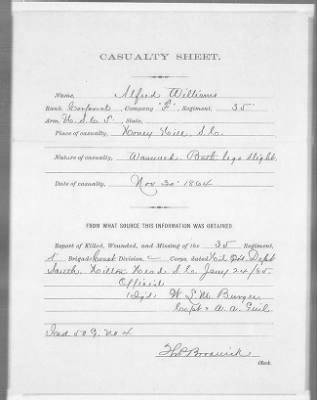 CASUALTY SHEET.
Name, Alfred Williams
Rank, Corporal Company "F", Regiment, 35
Arm, U.S.C.T. State,
Place of casualty, Honey Hill, S.C.
Nature of casualty, Wounded Both legs slight
Date of casualty, Nov 30 1864
FROM WHAT SOURCE THIS INFORMATION WAS OBTAINED.
Report of Killed, Wounded, and Missing of the 35 Regiment,
Brigade, Coast Division, Corps, dated Dist Dept
South, Hilton Head S.C. Jany 24/65
Official
W L M Burger
Capt & A. A. Genl.
No 4
Clerk.